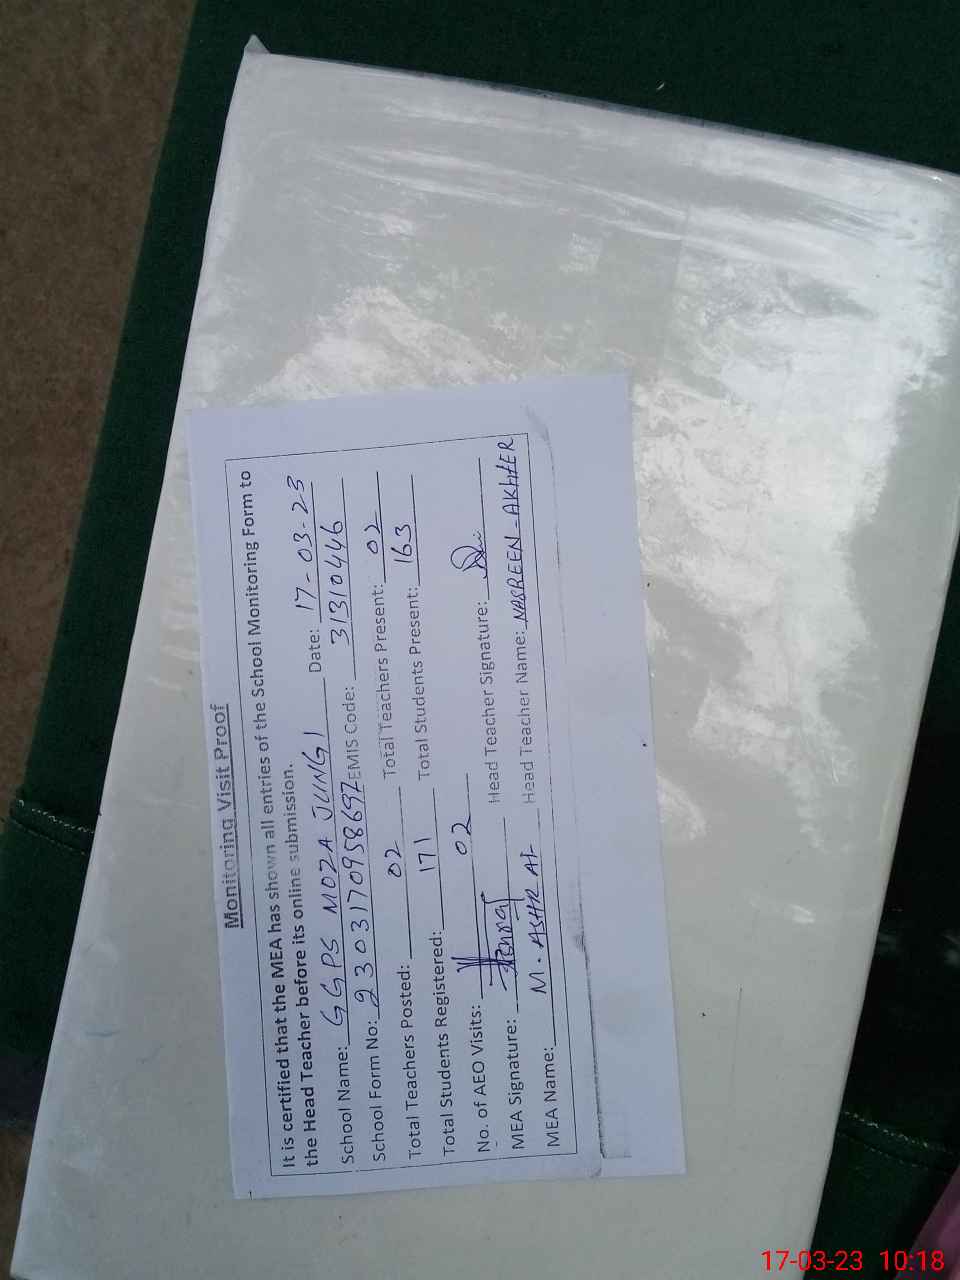 Monitoring Visit Proof
It is certified that the MEA has shown all entries of the School Monitoring Form to
the Head Teacher before its online submission.
School Name: GGPS MOZA JUNGI Date: 17-03-23
School Form No: 2303170958697 EMIS Code: 31310446
Total Teachers Posted: 02 Total Teachers Present: 02
Total Students Registered: 171 Total Students Present: 163
No. of AEO Visits: 02
MEA Signature: Head Teacher Signature:
MEA Name: M. ASHRAF Head Teacher Name: NASREEN-AKHTER
17-03-23 10:18